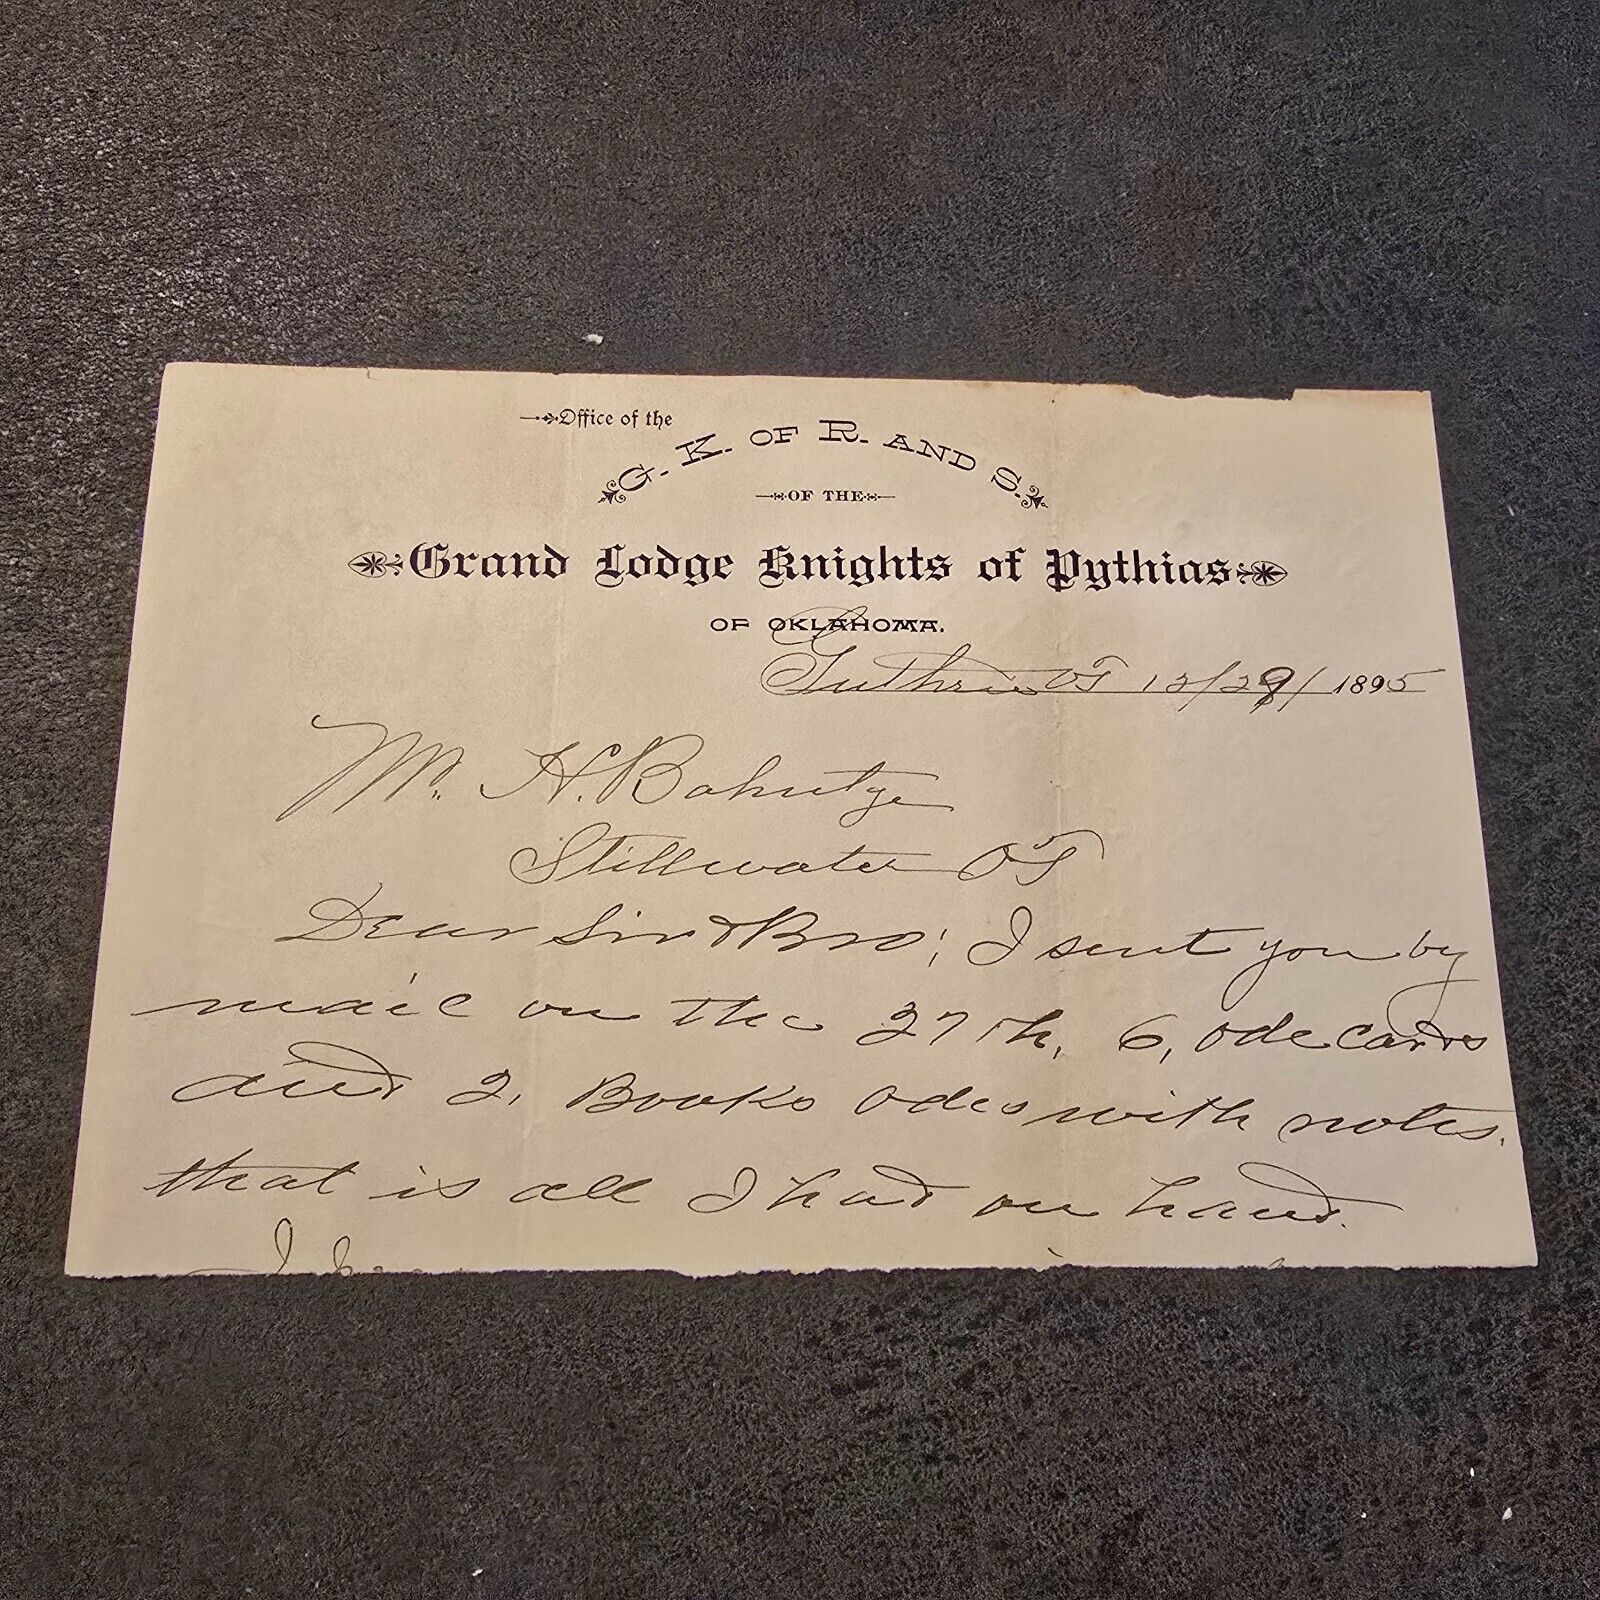 Office of the
G. K. OF R. AND S.
OF THE
Grand Lodge Knights of Pythias
OF OKLAHOMA.
Guthrie OT 12/29/1895
Mr. H. Bahntge
Stillwater OT
Dear Sir & Bro; I sent you by
mail on the 27th, 6, ode cards
and 2, Books odes with notes.
that is all I had on hand.
I